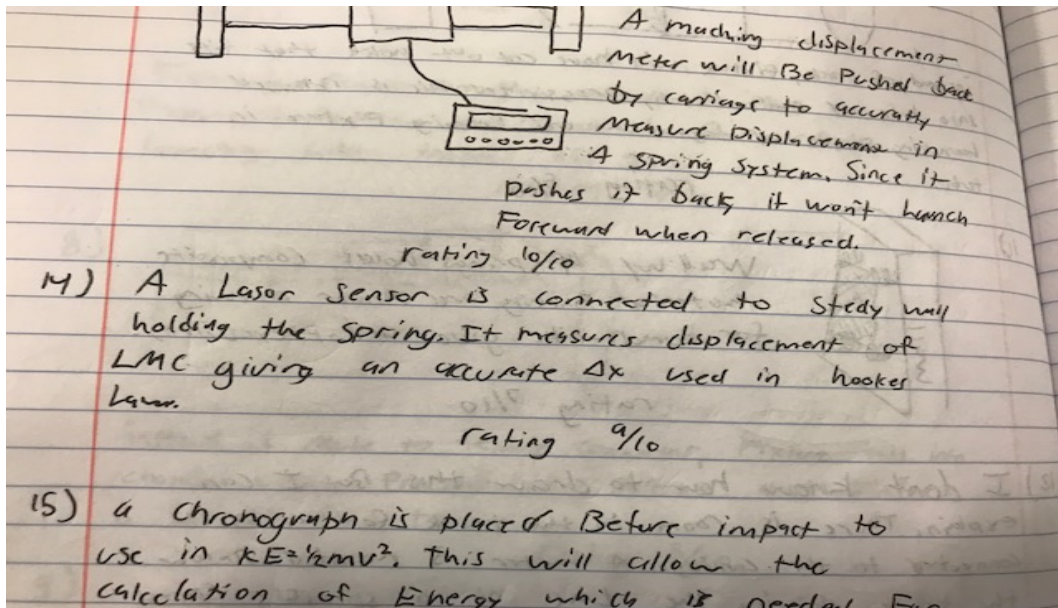 A machine displacement
meter will Be Pushed back
by carriage to accuratly
Measure Displacement in
A spring system. Since it
pushes it back, it won't launch
Foreward when released.
rating 10/10
14) A Lasor sensor is connected to stedy wall
holding the spring. It measures displacement of
LMC giving an accurate Δx used in hookes
Law.
rating 9/10
15) a chronograph is placed Before impact to
use in KE=½mv². This will allow the
calculation of Energy which is needed For